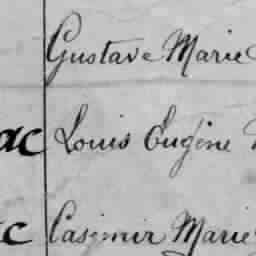 Gustave Marie
ac Louis Eugène
c Casimir Marie